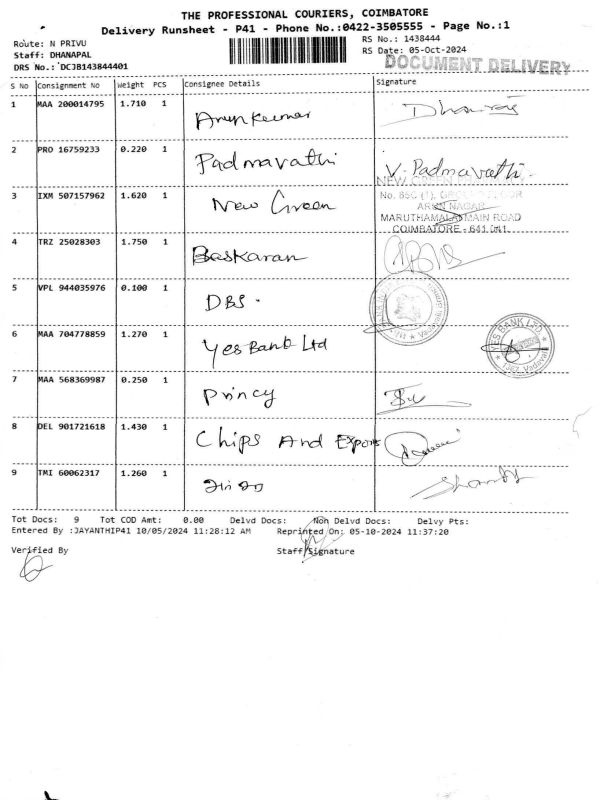 THE PROFESSIONAL COURIERS, COIMBATORE
Delivery Runsheet - P41 - Phone No.:0422-3505555 - Page No.:1
Route: N PRIVU
RS No.: 1438444
Staff: DHANAPAL
RS Date: 05-Oct-2024
DRS No.: DCJB143844401
DOCUMENT DELIVERY
S No Consignment No Weight PCS Consignee Details Signature
1 MAA 200014795 1.710 1 Arun kumar Dhanraj
2 PRO 16759233 0.220 1 Padmavathi V. Padmavathi
3 IXM 507157962 1.620 1 New Green
NEW GREEN
No. 85C (1), GROUND FLOOR
ARUN NAGAR
MARUTHAMALAI MAIN ROAD
COIMBATORE - 641
4 TRZ 25028303 1.750 1 Baskaran
5 VPL 944035976 0.100 1 DBS.
6 MAA 704778859 1.270 1 Yes Bank Ltd
YES BANK LTD.
Vadavalli
7 MAA 568369987 0.250 1 Princy
8 DEL 901721618 1.430 1 Chips And Exports
9 TMI 60062317 1.260 1
Tot Docs: 9 Tot COD Amt: 0.00 Delvd Docs: Non Delvd Docs: Delvy Pts:
Entered By :JAYANTHIP41 10/05/2024 11:28:12 AM Reprinted On: 05-10-2024 11:37:20
Verified By Staff Signature